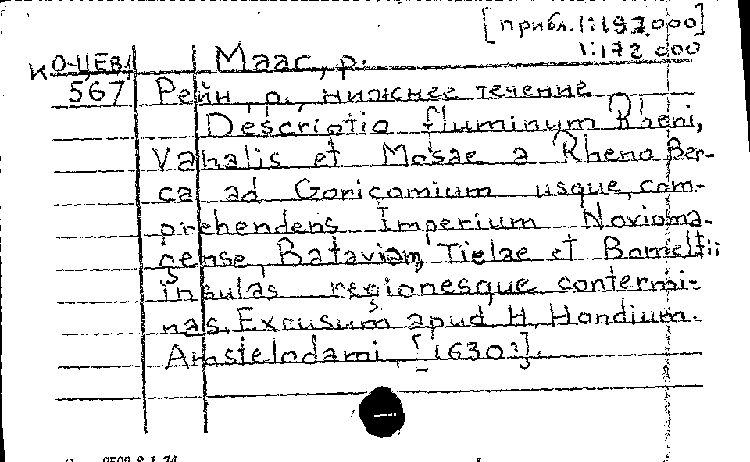 [прибл. 1:192000]
1:172 000
КО-ЦЕВ/ Маас, р.
567 Рейн, р., нижнее течение
Descriptio fluminum Rheni,
Vahalis et Mosae a Rheno Ber-
ca ad Goricomium usque, com-
prehendens Imperium Novioma-
gense, Bataviam, Tielae et Bomeltii
insulas regionesque contermi-
nas. Excusum apud H. Hondium.
Amstelodami, [1630?].